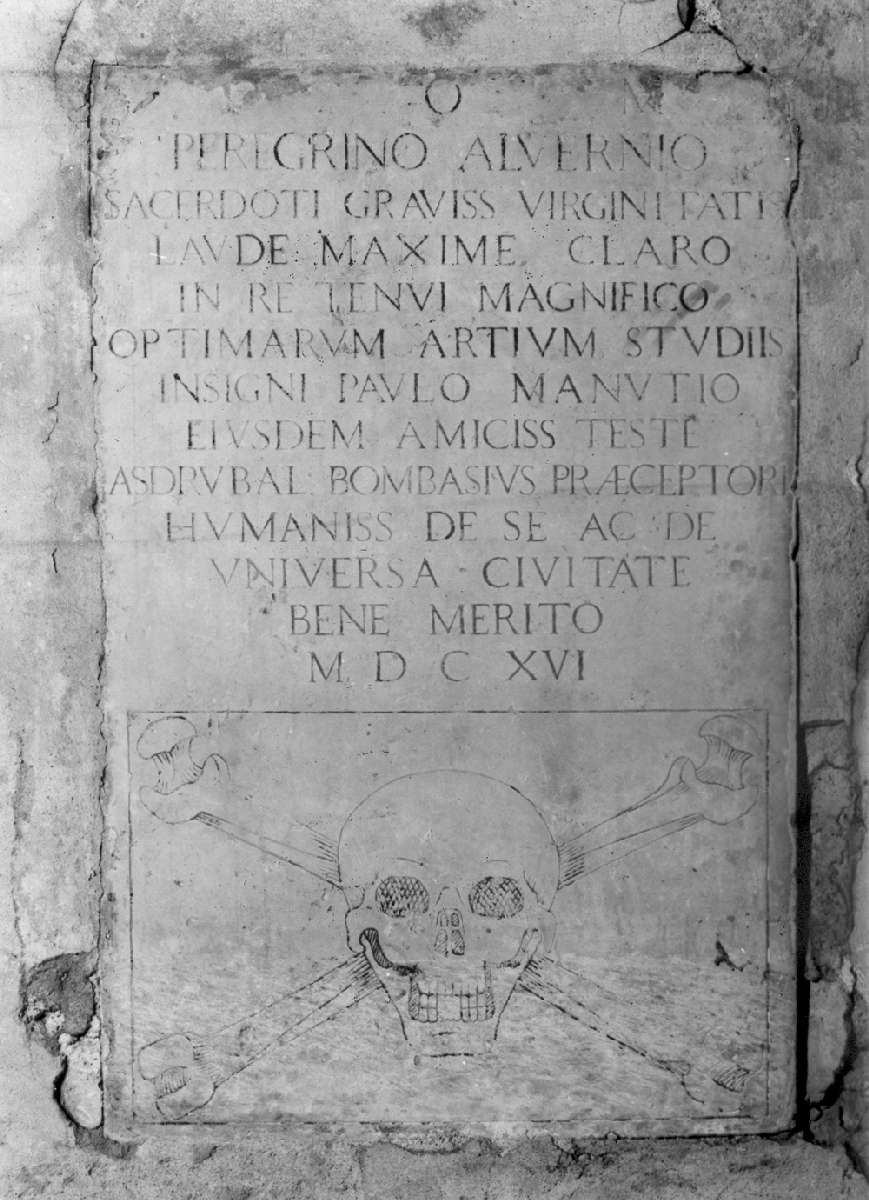 O M
PEREGRINO ALVERNIO
SACERDOTI GRAVISS VIRGINITATIS
LAVDE MAXIME CLARO
IN RE TENVI MAGNIFICO
OPTIMARVM ARTIVM STVDIIS
INSIGNI PAVLO MANVTIO
EIVSDEM AMICISS TESTE
ASDRVBAL BOMBASIVS PRÆCEPTORI
HVMANISS DE SE AC DE
VNIVERSA CIVITATE
BENE MERITO
M D C XVI